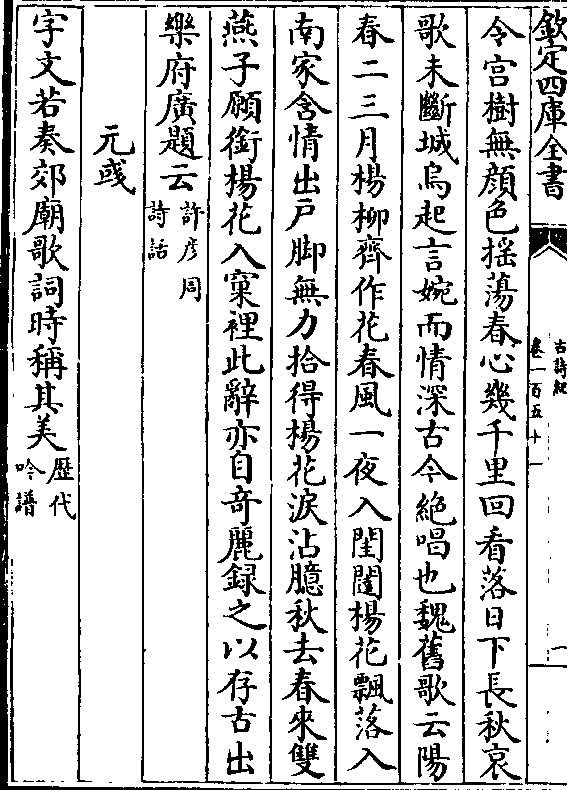 欽定四庫全書
古詩紀
卷一百五十一
令宫樹無顔色揺蕩春心幾千里回看落日下長秋哀
歌未斷城烏起言婉而情深古今絶唱也魏舊歌云陽
春二三月楊柳齊作花春風一夜入閨闥楊花飄落入
南家含情出戸脚無力拾得楊花淚沾臆秋去春來雙
燕子願銜楊花入窠裡此辭亦自奇麗録之以存古出
樂府廣題云許彦周詩話
元彧
字文若奏郊廟歌詞時稱其美歴代吟譜